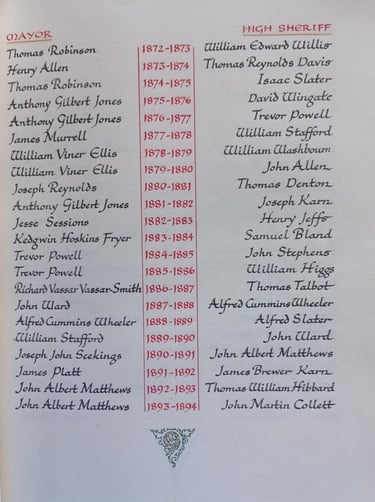 MAYOR HIGH SHERIFF
Thomas Robinson 1872-1873 William Edward Willis
Henry Allen 1873-1874 Thomas Reynolds Davis
Thomas Robinson 1874-1875 Isaac Slater
Anthony Gilbert Jones 1875-1876 David Wingate
Anthony Gilbert Jones 1876-1877 Trevor Powell
James Murrell 1877-1878 William Stafford
William Viner Ellis 1878-1879 William Washbourn
William Viner Ellis 1879-1880 John Allen
Joseph Reynolds 1880-1881 Thomas Denton
Anthony Gilbert Jones 1881-1882 Joseph Karn
Jesse Sessions 1882-1883 Henry Jeffs
Kedgwin Hoskins Fryer 1883-1884 Samuel Bland
Trevor Powell 1884-1885 John Stephens
Trevor Powell 1885-1886 William Higgs
Richard Vassar Vassar-Smith 1886-1887 Thomas Talbot
John Ward 1887-1888 Alfred Cummins Wheeler
Alfred Cummins Wheeler 1888-1889 Alfred Slater
William Stafford 1889-1890 John Ward
Joseph John Seekings 1890-1891 John Albert Matthews
James Platt 1891-1892 James Brewer Karn
John Albert Matthews 1892-1893 Thomas William Hibbard
John Albert Matthews 1893-1894 John Martin Collett